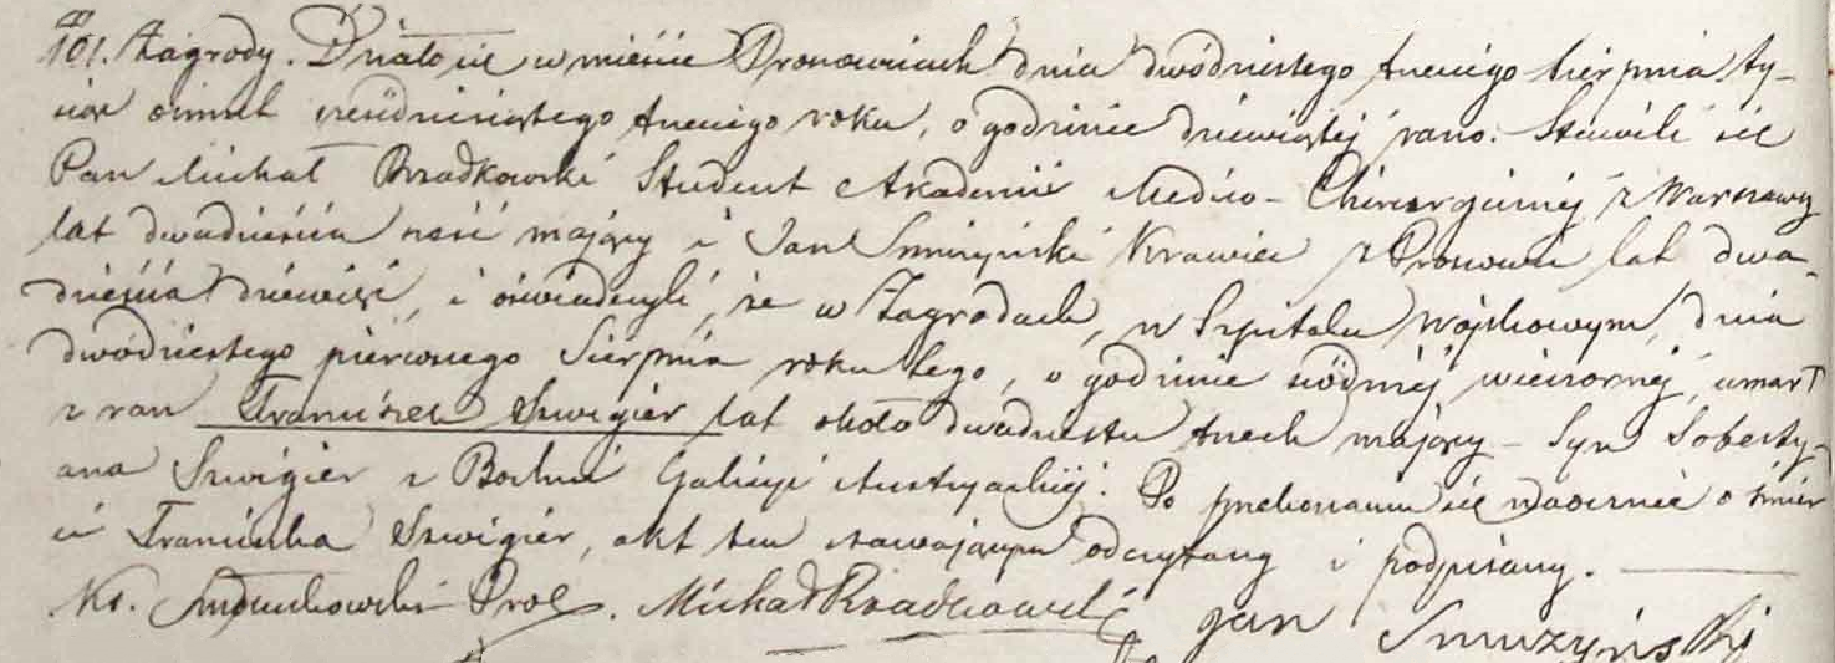 101. Zagrody. Działo się w mieście Proszowicach dnia dwódziestego trzeciego Sierpnia ty-
siąc ośmset sześćdziesiątego trzeciego roku, o godzinie dziewiątej rano. Stawili się
Pan Michał Rzadkowski Student Akademii Medico-Chirurgicznej z Warszawy
lat dwadzieścia sześć mający i Jan Smużyński Krawiec z Proszowic lat dwa-
dzieścia dziewięć, i oświadczyli, że w Zagrodach, w Szpitalu Wojskowym, dnia
dwódziestego pierwszego Sierpnia roku tego, o godzinie siódmej wieczornej, umarł
z ran Franciszek Szwigier lat około dwadziestu trzech mający – Syn Sobesty-
ana Szwigier z Bochni Galicyi Austryackiej. Po przekonaniu się naocznie o śmier
ci Franciszka Szwigier, akt ten stawającym odczytany i podpisany.
Ks. Prob. Michał Rzadkowski Jan Smużyński